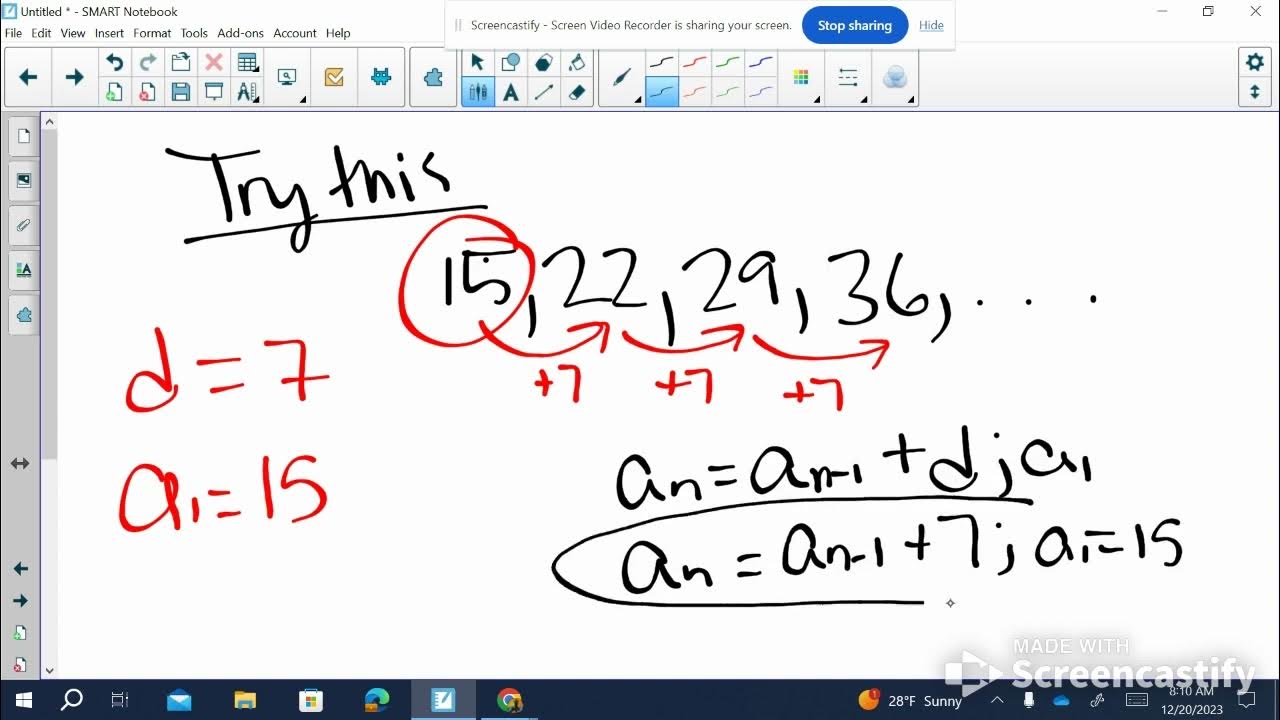 Untitled * - SMART Notebook
Screencastify - Screen Video Recorder is sharing your screen.
Stop sharing
Hide
File Edit View Insert Format Tools Add-ons Account Help
Try this
15, 22, 29, 36, . . .
+7 +7 +7
d = 7
aₙ = aₙ₋₁ + d ; a₁
a₁ = 15
aₙ = aₙ₋₁ + 7 ; a₁ = 15
MADE WITH
Screencastify
1
28°F Sunny
8:10 AM
12/20/2023